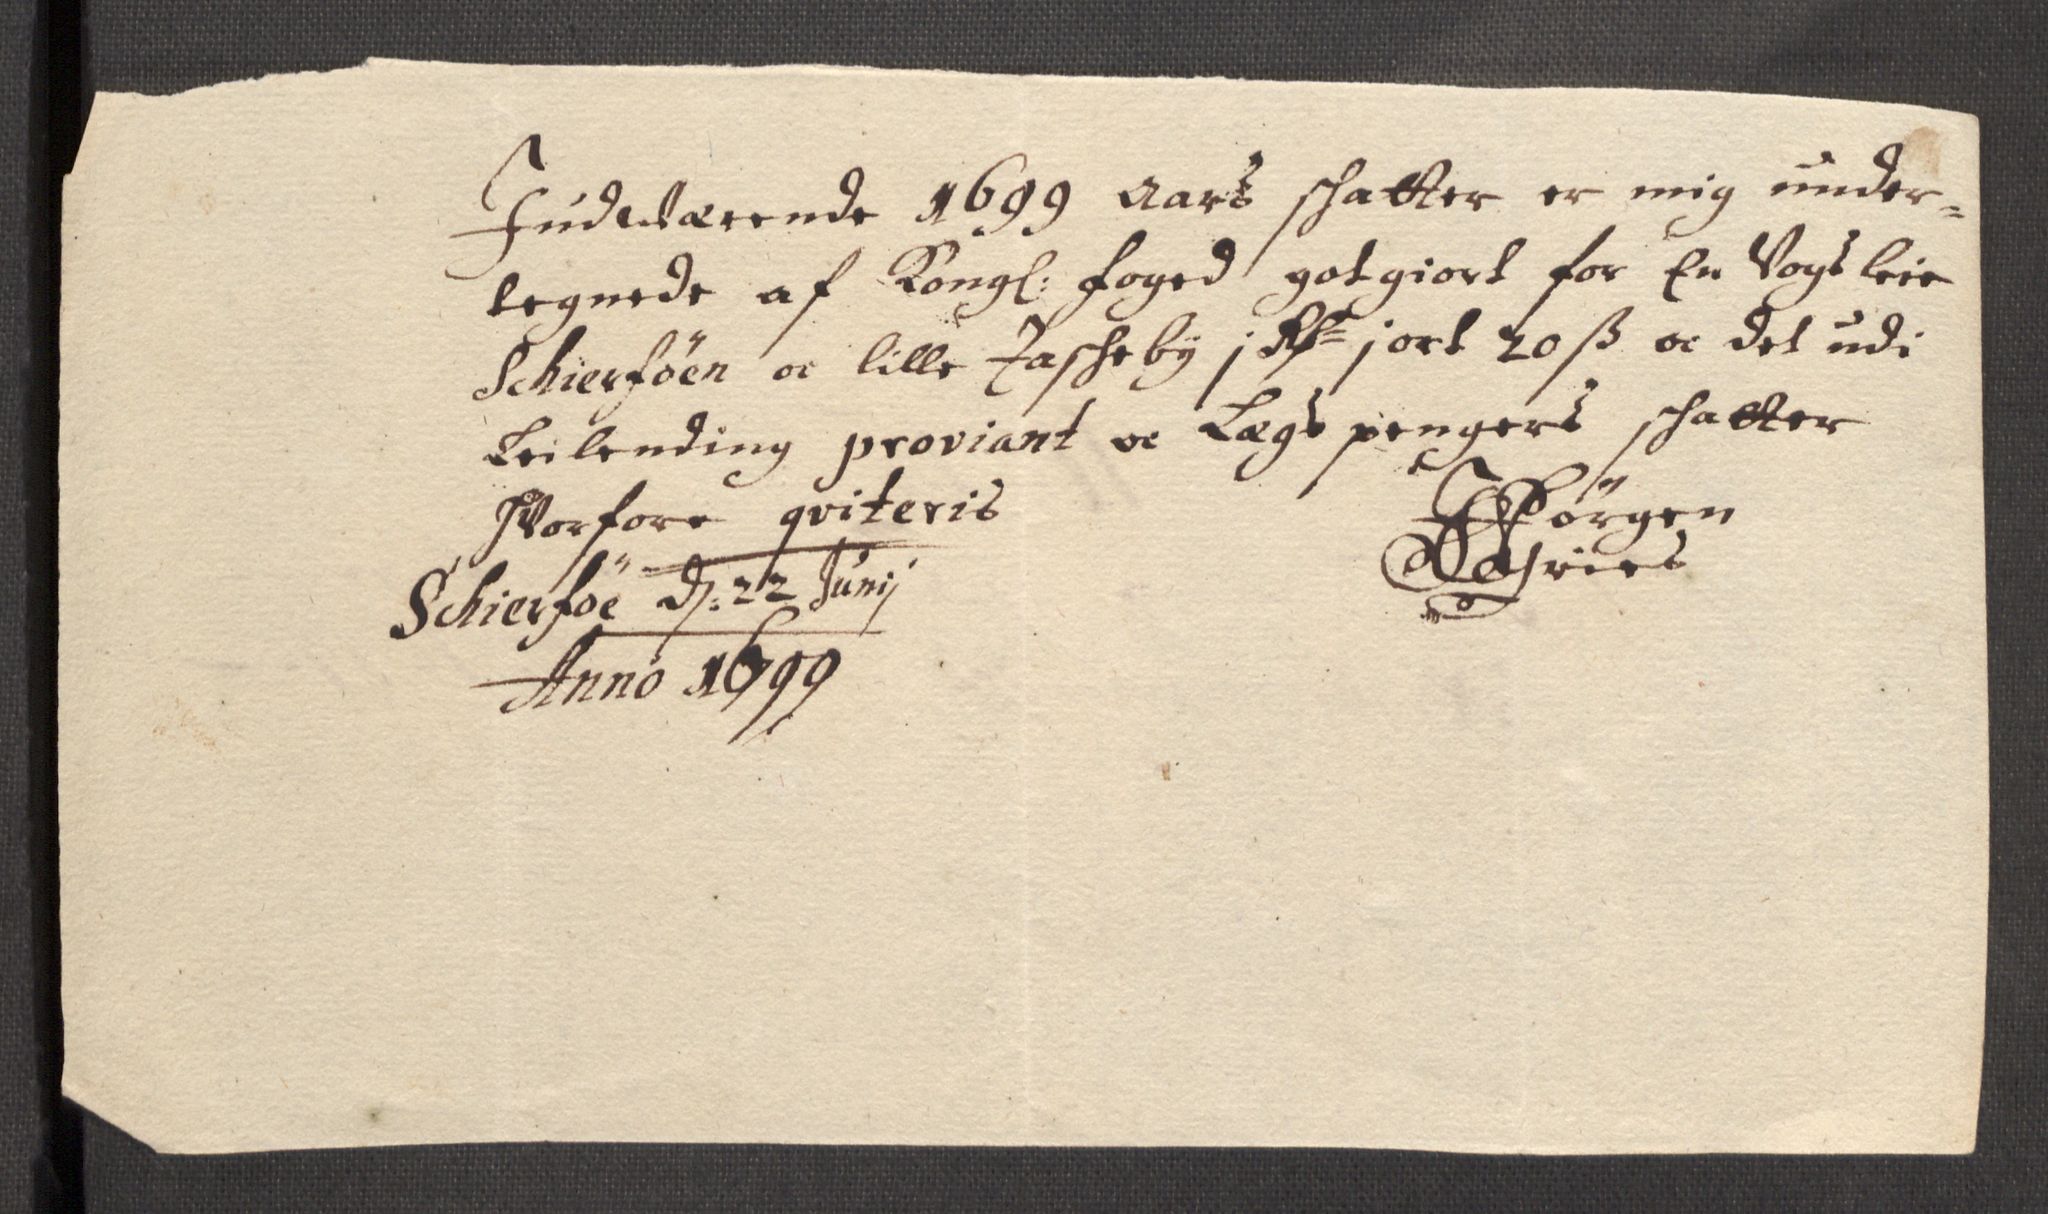 Indeværende 1699 Aars schatter er mig under=
tegnede af Kongl: foged gotgiort for En Vogs leie
Schierföen oc lille Tascheby j Rdr j ort 20 ß oc det udi
Leilending proviant oc Lægs pengers schatter
Hvorfore qviteris
Jörgen
Schierföe d: 22 Junij
Anno 1699